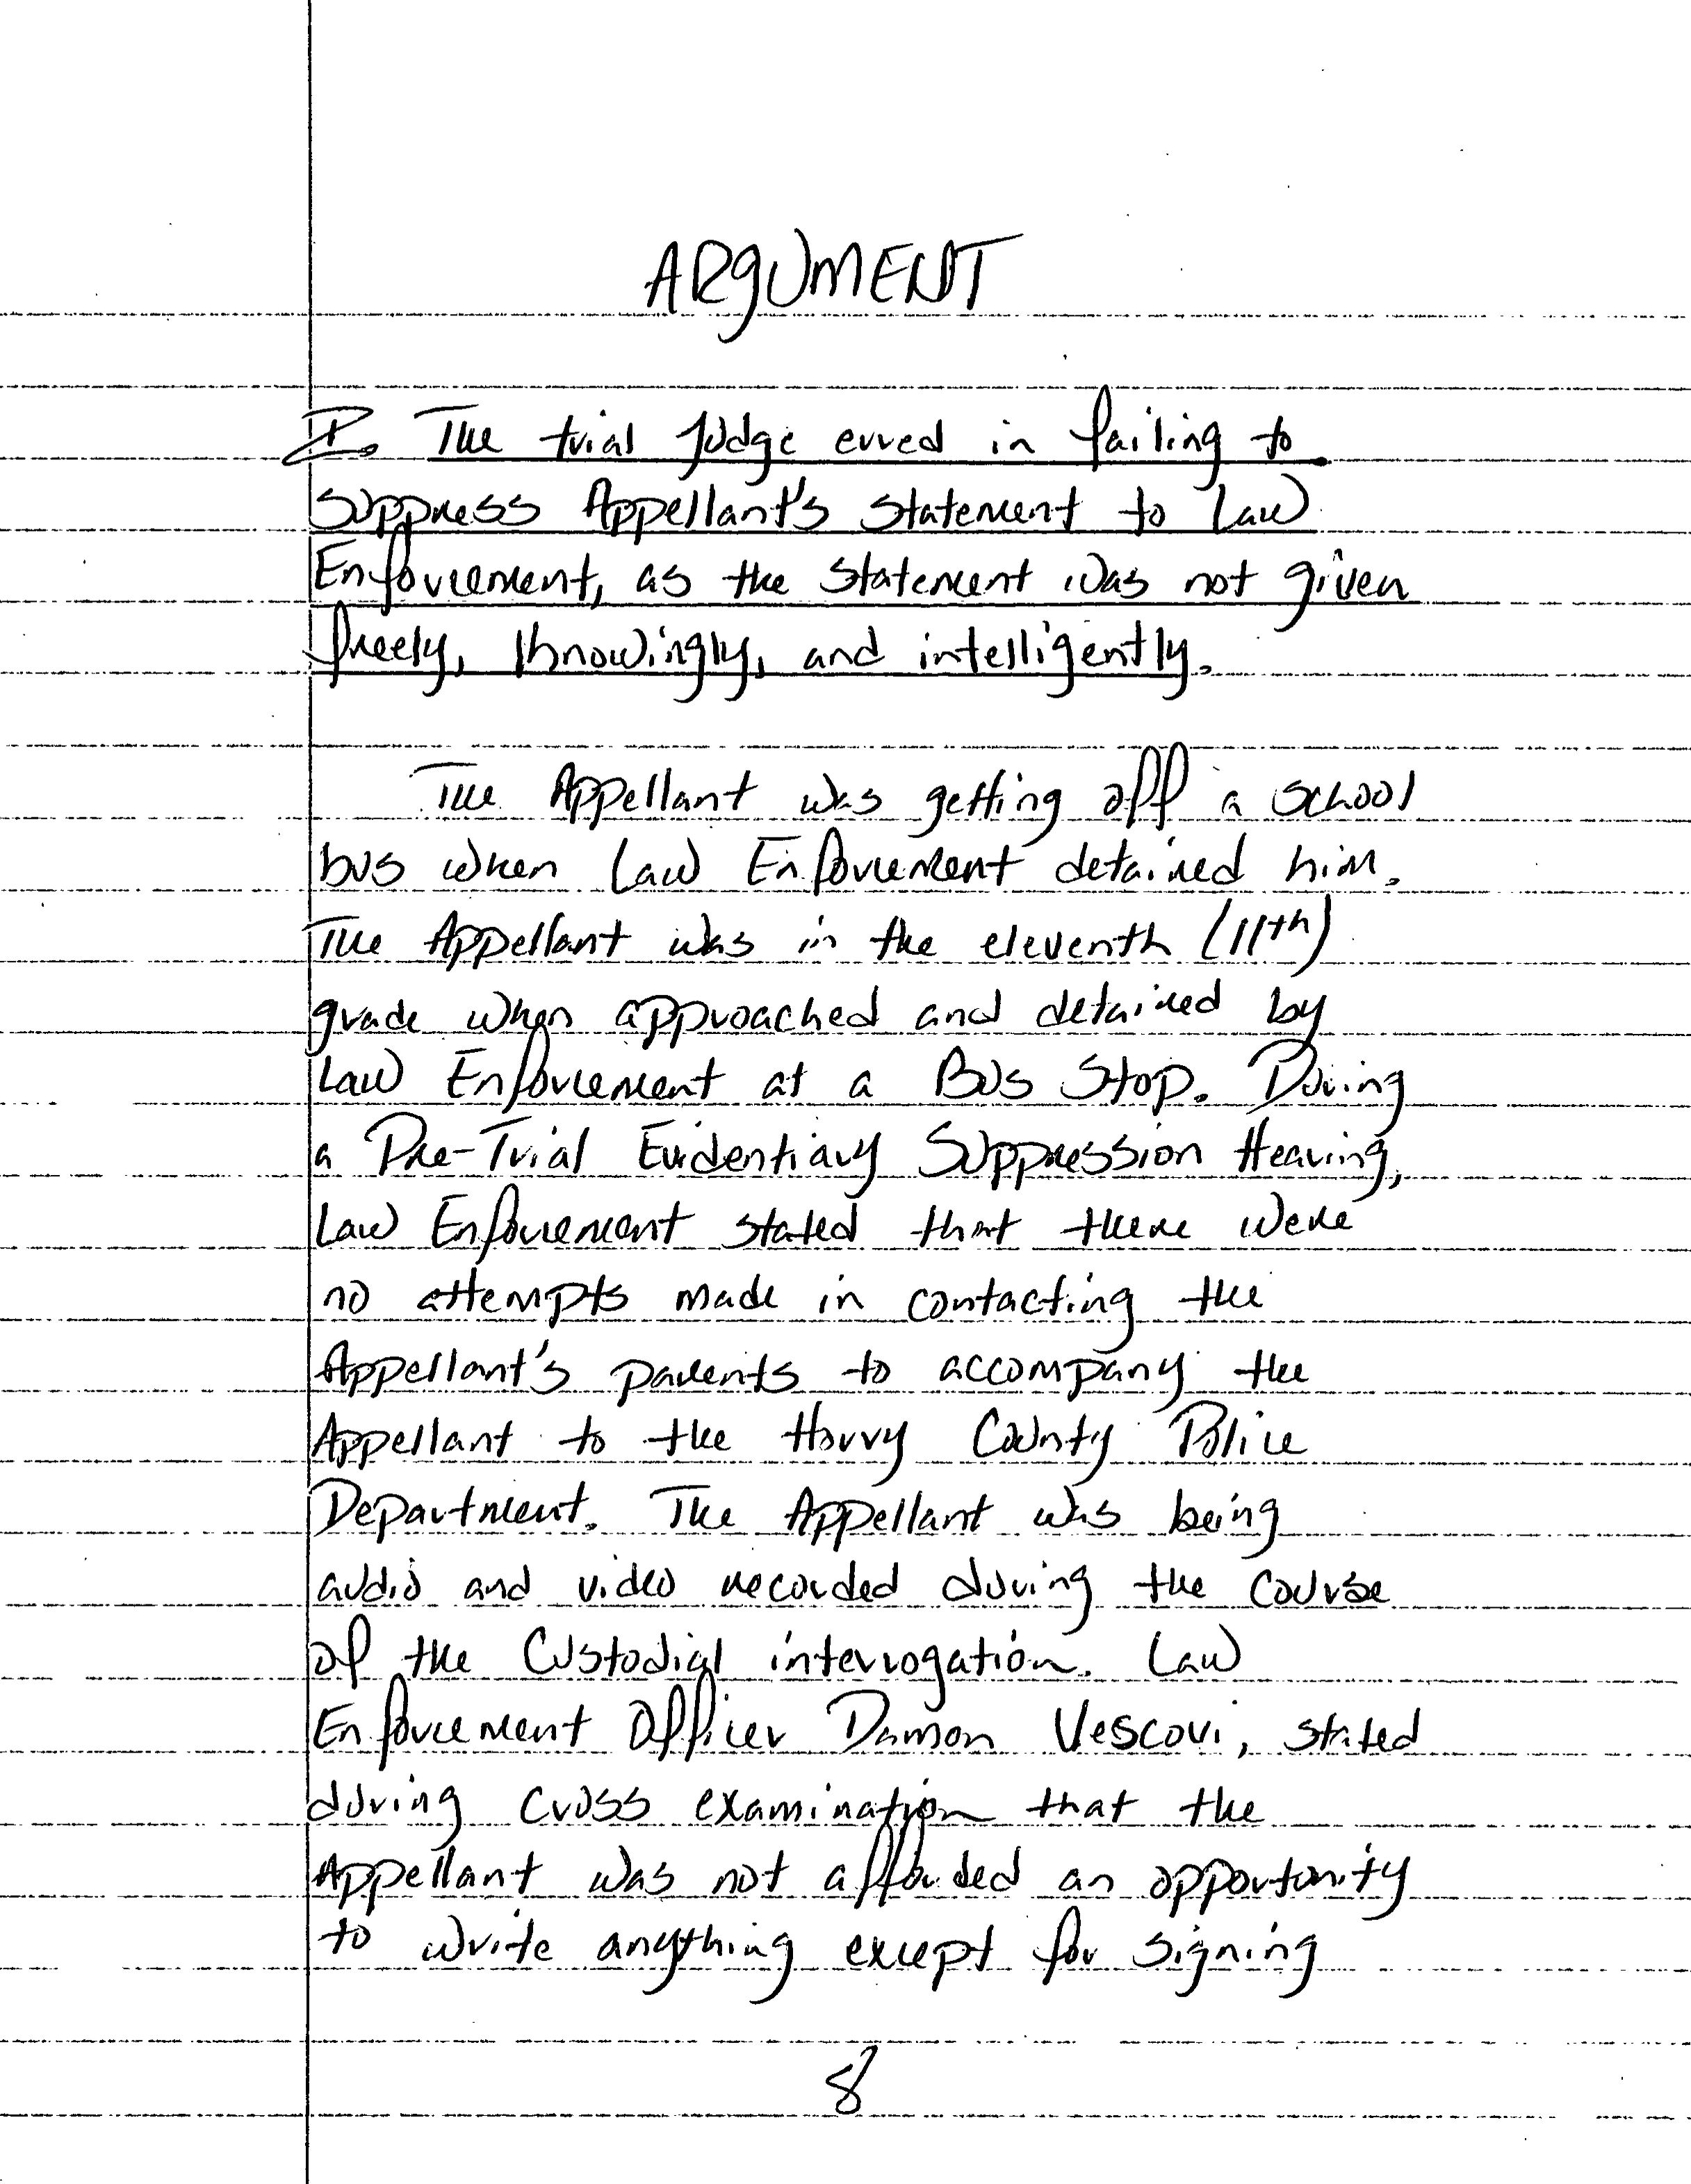 ARGUMENT
I. The trial Judge erred in failing to
Suppress Appellant's Statement to Law
Enforcement, as the Statement was not given
freely, Knowingly, and intelligently.
The Appellant was getting off a school
bus when Law Enforcement detained him.
The Appellant was in the eleventh (11th)
grade when approached and detained by
Law Enforcement at a Bus Stop. During
a Pre-Trial Evidentiary Suppression Hearing,
Law Enforcement stated that there were
no attempts made in contacting the
Appellant's parents to accompany the
Appellant to the Horry County Police
Department. The Appellant was being
audio and video recorded during the course
of the Custodial interrogation. Law
Enforcement Officer Damon Vescovi, stated
during cross examination that the
Appellant was not afforded an opportunity
to write anything except for signing
8